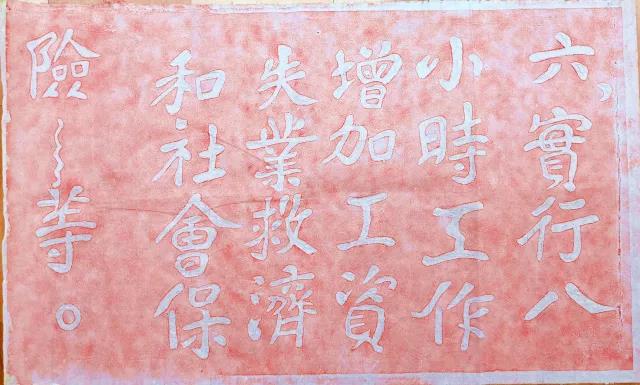 六、實行八
小時工作
增加工資
失業救濟
和社會保
險~~~等。